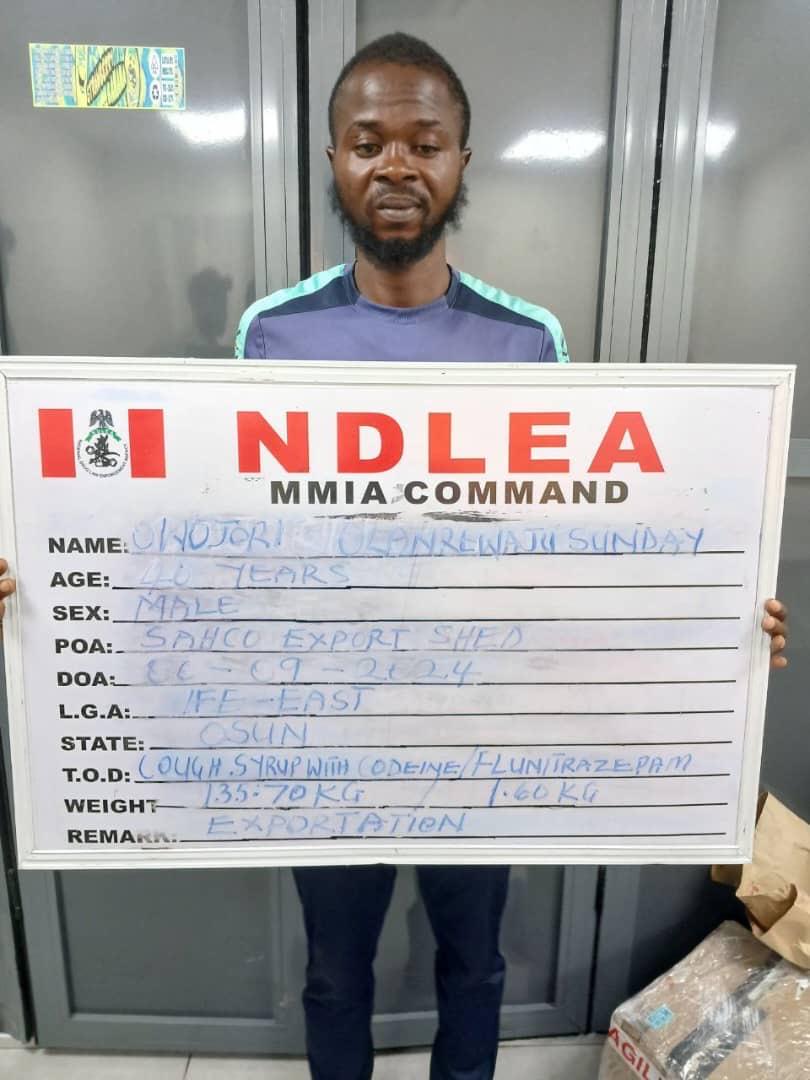 NDLEA
MMIA COMMAND
NAME: OWOJORI OLANREWAJU SUNDAY
AGE: 40 YEARS
SEX: MALE
POA: SAHCO EXPORT SHED
DOA: 06-09-2024
L.G.A: IFE-EAST
STATE: OSUN
T.O.D: COUGH SYRUP WITH CODEINE/FLUNITRAZEPAM
WEIGHT 135.70KG / 1.60KG
REMARK: EXPORTATION
AGIL